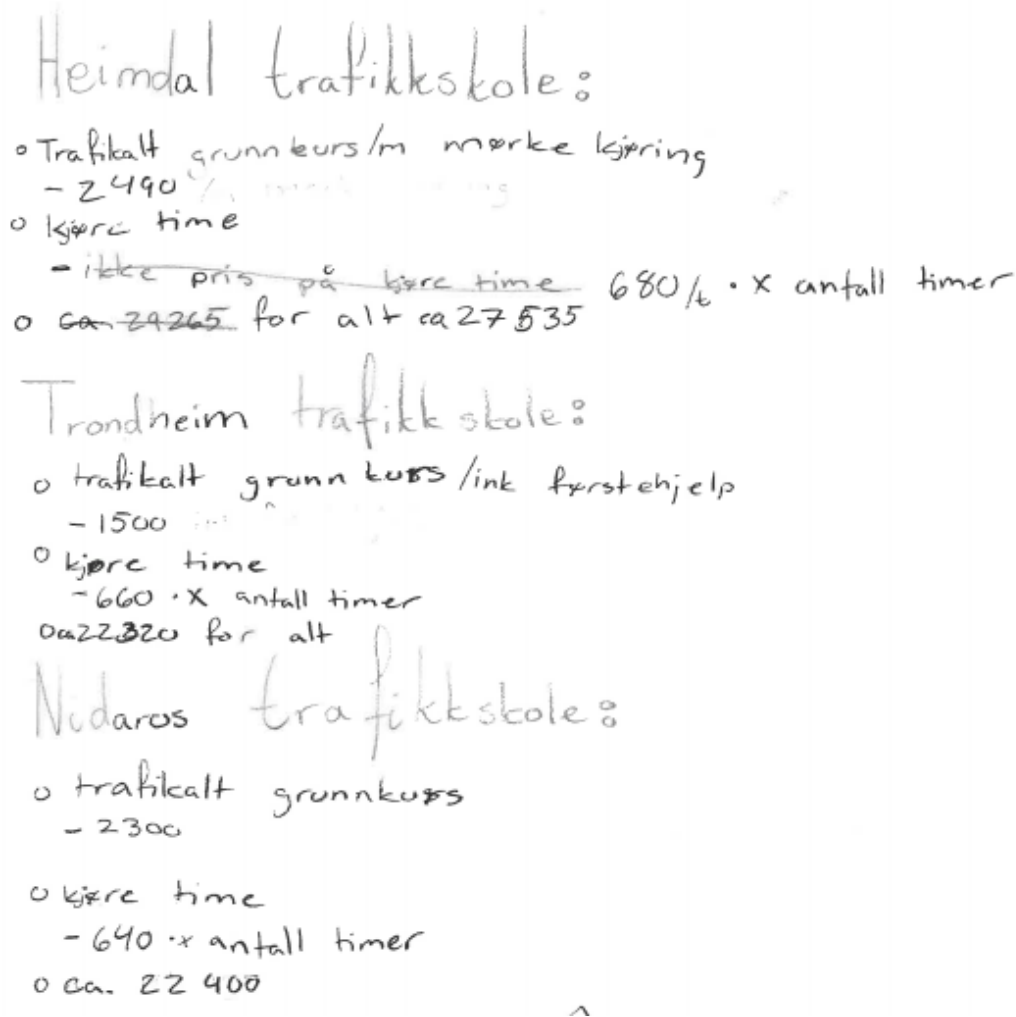 Heimdal trafikkskole:
o Trafikalt grunnkurs/m mørke kjøring
- 2490
o kjøre time
- ikke pris på kjøre time 680/t · x antall timer
o ca. 29265 for alt ca 27 535
Trondheim trafikk skole:
o trafikalt grunn kurs /ink førstehjelp
- 1500
o kjøre time
- 660 · x antall timer
o ca 22320 for alt
Nidaros trafikkskole:
o trafikalt grunnkurs
- 2300
o kjøre time
- 640 · x antall timer
o ca. 22 400